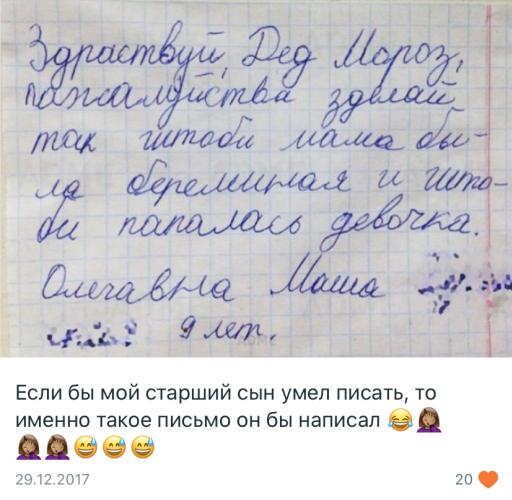 Здраствуй, Дед Мороз,
пажалуйства зделай
так штоби мама бы-
ла беременая и што-
би папалась девочка.
Олегавна Маша
9 лет.
Если бы мой старший сын умел писать, то
именно такое письмо он бы написал 😂🤦🏾‍♀️
🤦🏾‍♀️🤦🏾‍♀️😅😅😅
29.12.2017
20